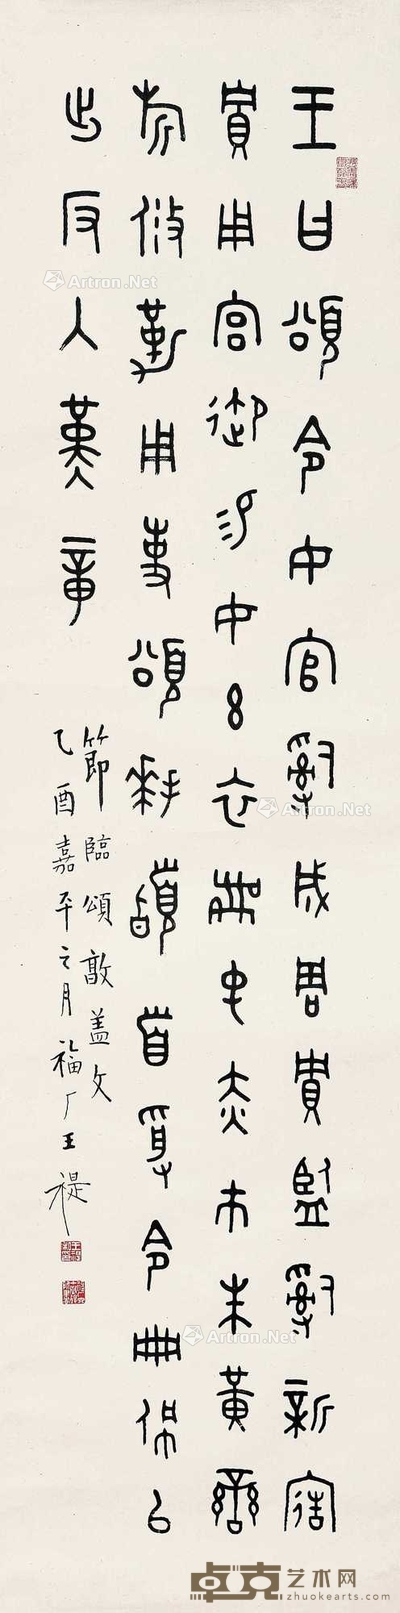 王曰頌令女官𤔲成周貯監𤔲新造
貯用宮御易女玄衣黹屯赤巿朱黃䜌
旂攸勒用事頌拜𩒨首受令冊佩以
出反入堇章
節臨頌敦盖文
乙酉嘉平之月福厂王禔
Artron.Net
Artron.Net
Artron.Net
Artron.Net
Artron.Net
卓克艺术网
zhuokearts.com